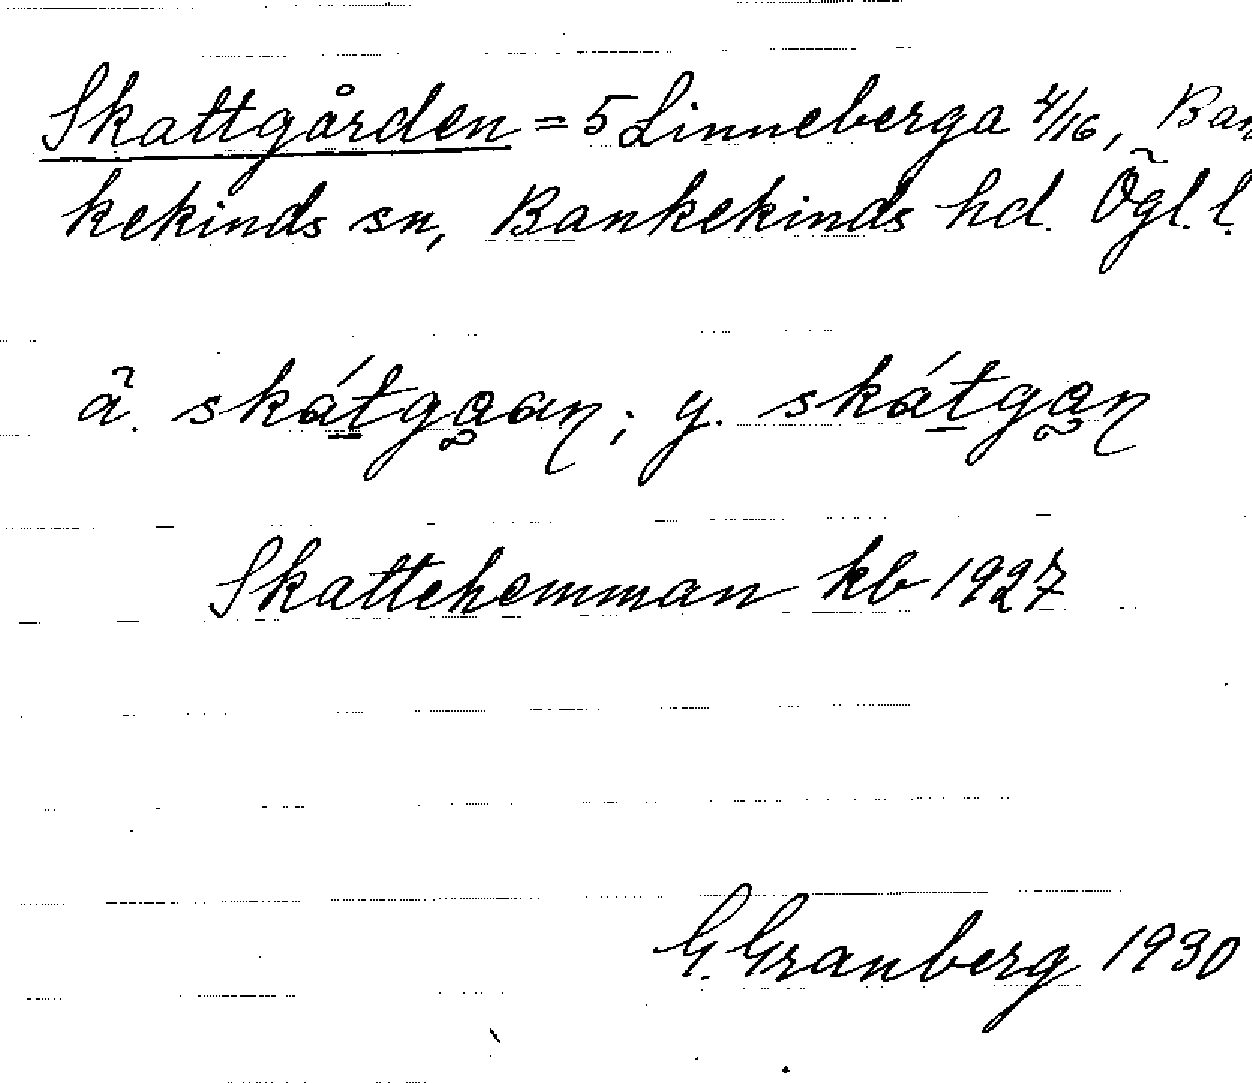 Skattgården = 5 Linneberga 4/16, Ban
kekinds sn, Bankekinds hd. Ögl. l.
ä. skátgɑan; y. skátgɑn
Skattehemman kb 1927
G. Granberg 1930